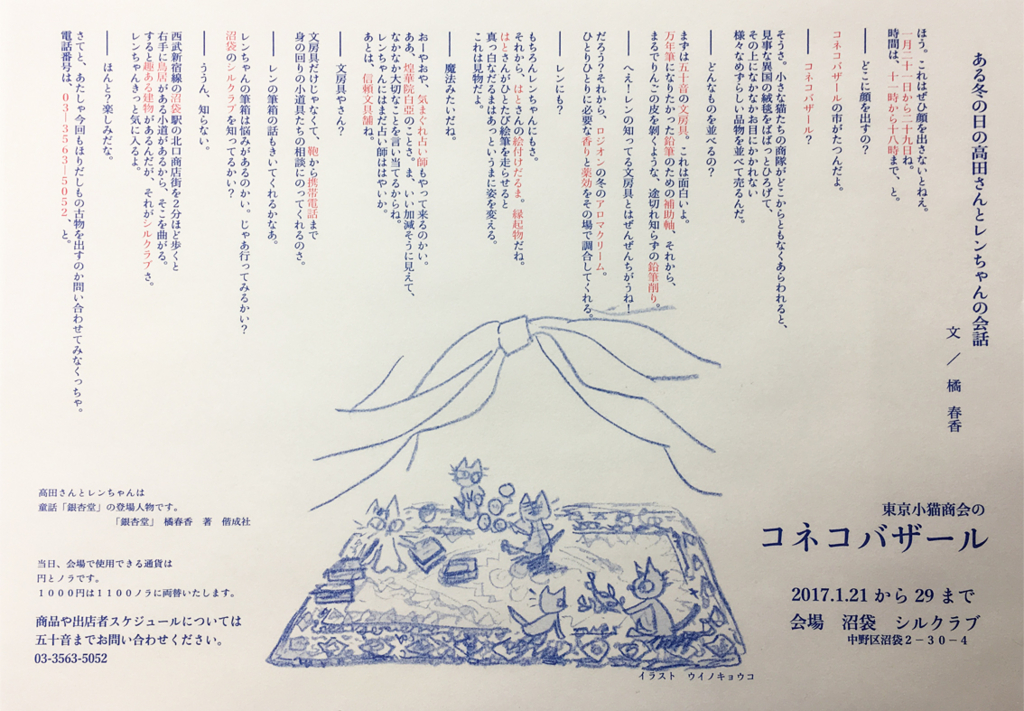 ある冬の日の高田さんとレンちゃんの会話
文 ／ 橘 春香
ほう。これはぜひ顔を出さないとねえ。
一月二十一日から二十九日ね。
時間は、十一時から十八時まで、と。
── どこに顔を出すの？
コネコバザールの市がたつんだよ。
── コネコバザール？
そうさ。小さな猫たちの商隊がどこからともなくあらわれると、
見事な異国の絨毯をばばっとひろげて、
その上になかなかお目にかかれない
様々なめずらしい品物を並べて売るんだ。
── どんなものを並べるの？
まずは五十音の文房具。これは面白いよ。
万年筆になりたかった鉛筆のための補助軸、それから、
まるでりんごの皮を剝くような、途切れ知らずの鉛筆削り。
── へえ！レンの知ってる文房具とはぜんぜんちがうね！
だろう？それから、ロジオンの冬のアロマクリーム。
ひとりひとりに必要な香りと薬効をその場で調合してくれる。
── レンにも？
もちろんレンちゃんにもさ。
それから、はとさんの絵付けだるま。縁起物だね。
はとさんがひとたび絵筆を走らせると
真っ白なだるまはあっというまに姿を変える。
これは見物だよ。
── 魔法みたいだね。
おーやおや、気まぐれ占い師もやって来るのかい。
ああ、煌華院白亞のことさ。ま、いい加減そうに見えて、
なかなか大切なことを言い当てるからね。
レンちゃんにはまだ占い師ははやいか。
あとは、信頼文具舗ね。
── 文房具やさん？
文房具だけじゃなくて、鞄から携帯電話まで
身の回りの小道具たちの相談にのってくれるのさ。
── レンの筆箱の話もきいてくれるかなあ。
レンちゃんの筆箱は悩みがあるのかい。じゃあ行ってみるかい？
沼袋のシルクラブを知ってるかい？
── ううん、知らない。
西武新宿線の沼袋駅の北口商店街を2分ほど歩くと
右手に鳥居がある小道があるから、そこを曲がる。
すると趣ある建物があるんだが、それがシルクラブさ。
レンちゃんきっと気に入るよ。
── ほんと？楽しみだな。
さてと、あたしゃ今回もほりだしもの古物を出すのか問い合わせてみなくっちゃ。
電話番号は、０３－３５６３－５０５２、と。
東京小猫商会の
コネコバザール
2017.1.21 から 29 まで
会場 沼袋 シルクラブ
中野区沼袋２－３０－４
高田さんとレンちゃんは
童話「銀杏堂」の登場人物です。
「銀杏堂」 橘春香 著 偕成社
当日、会場で使用できる通貨は
円とノラです。
１０００円は１１００ノラに両替いたします。
商品や出店者スケジュールについては
五十音までお問い合わせください。
03-3563-5052
イラスト ウイノキョウコ